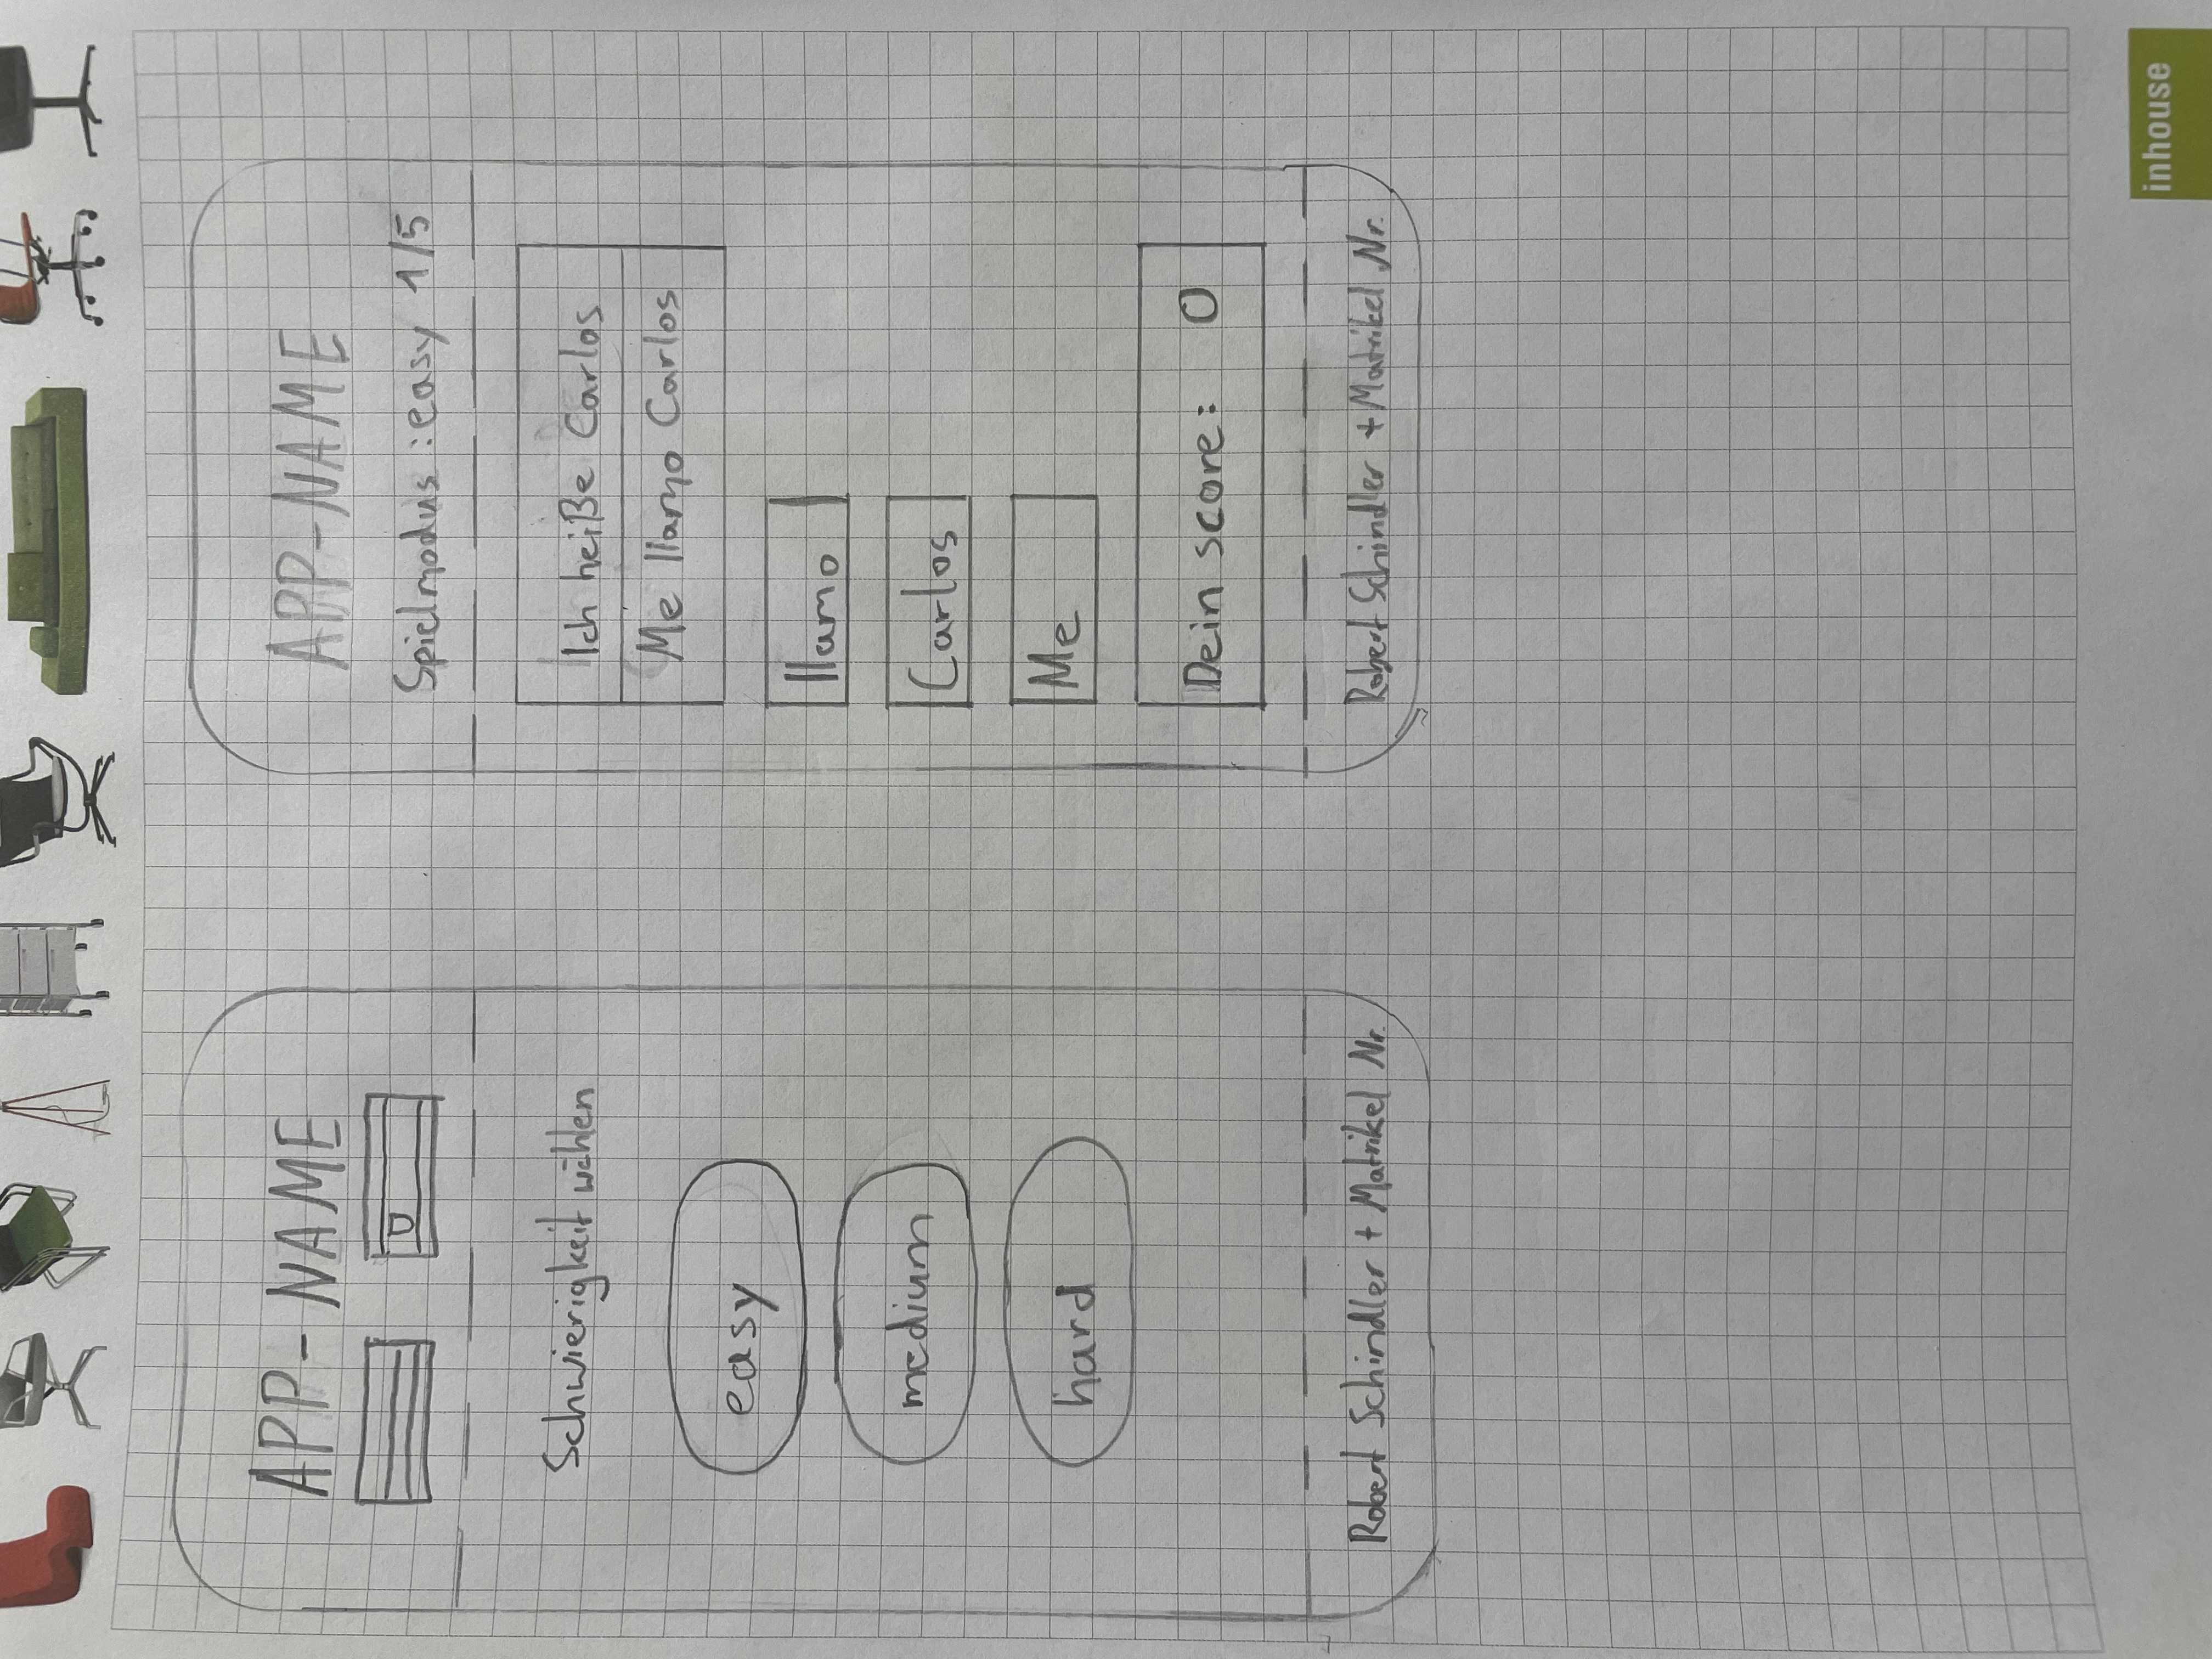 APP-NAME
Schwierigkeit wählen
easy
medium
hard
Robert Schindler + Matrikel Nr.
APP-NAME
Spielmodus : easy 1/5
Ich heiße Carlos
Me llamo Carlos
llamo
Carlos
Me
Dein score: 0
Robert Schindler + Matrikel Nr.
inhouse